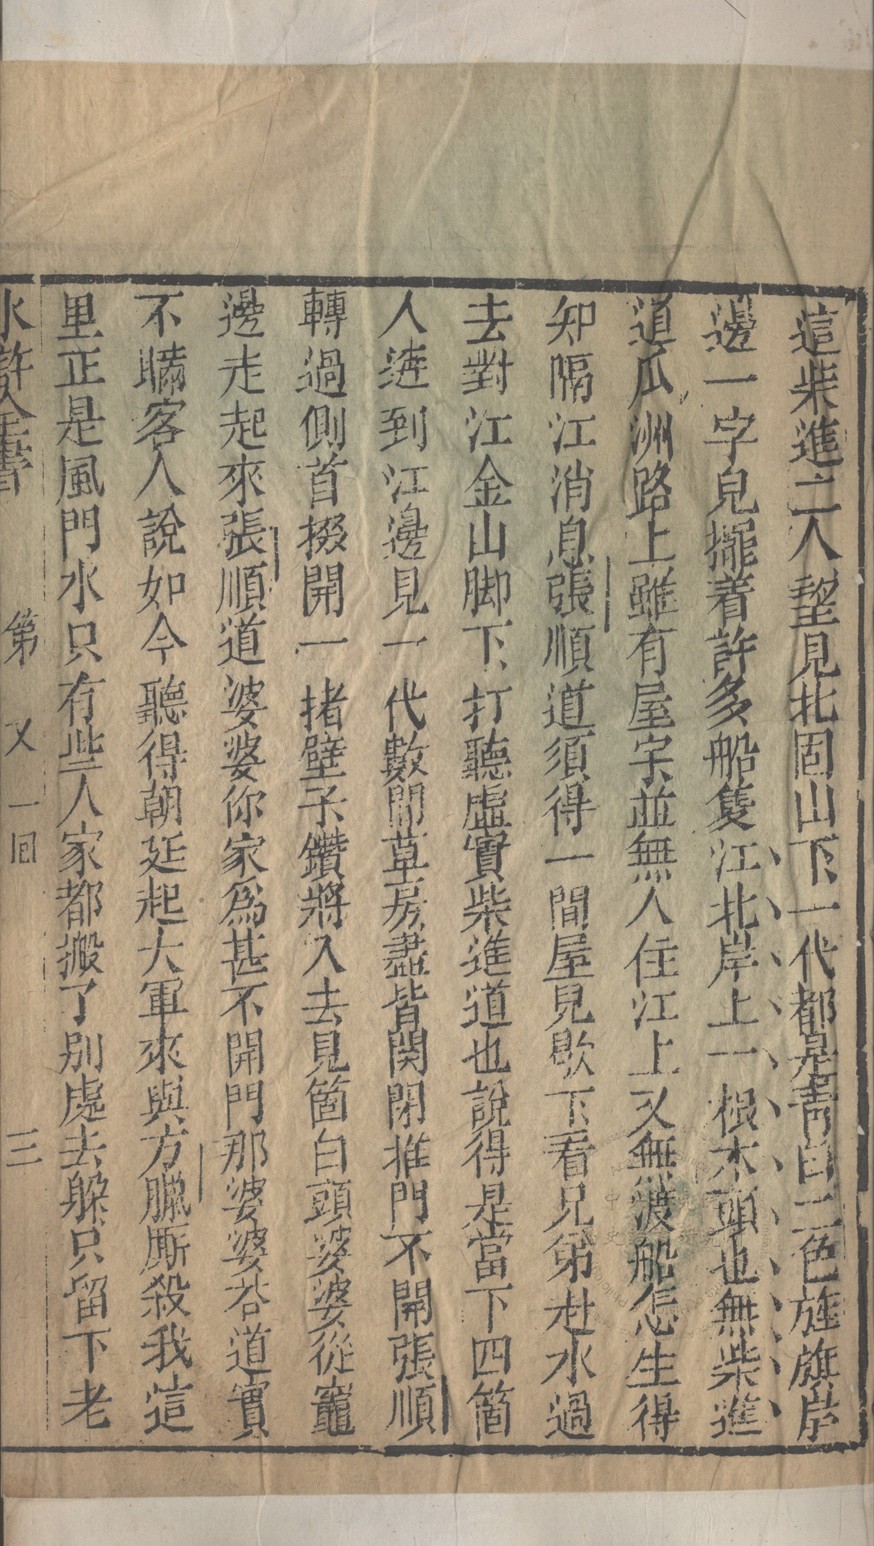 這柴進二人望見北固山下一代都是青白二色旌旗岸
邊一字兒擺着許多船隻江北岸上一根木頭也無柴進
道瓜洲路上雖有屋宇並無人住江上又無渡船怎生得
知隔江消息張順道須得一間屋兒歇下看兄弟赴水過
去對江金山脚下打聽虛實柴進道也說得是當下四箇
人迯到江邊見一代數間草房盡皆関閉推門不開張順
轉過側首掇開一堵壁子鑽將入去見箇白頭婆婆從竈
邊走起來張順道婆婆你家爲甚不開門那婆婆荅道實
不瞞客人說如今聽得朝廷起大軍來與方臘厮殺我這
里正是風門水只有些人家都搬了别處去躲只留下老
水滸全書　第　又一囘　三